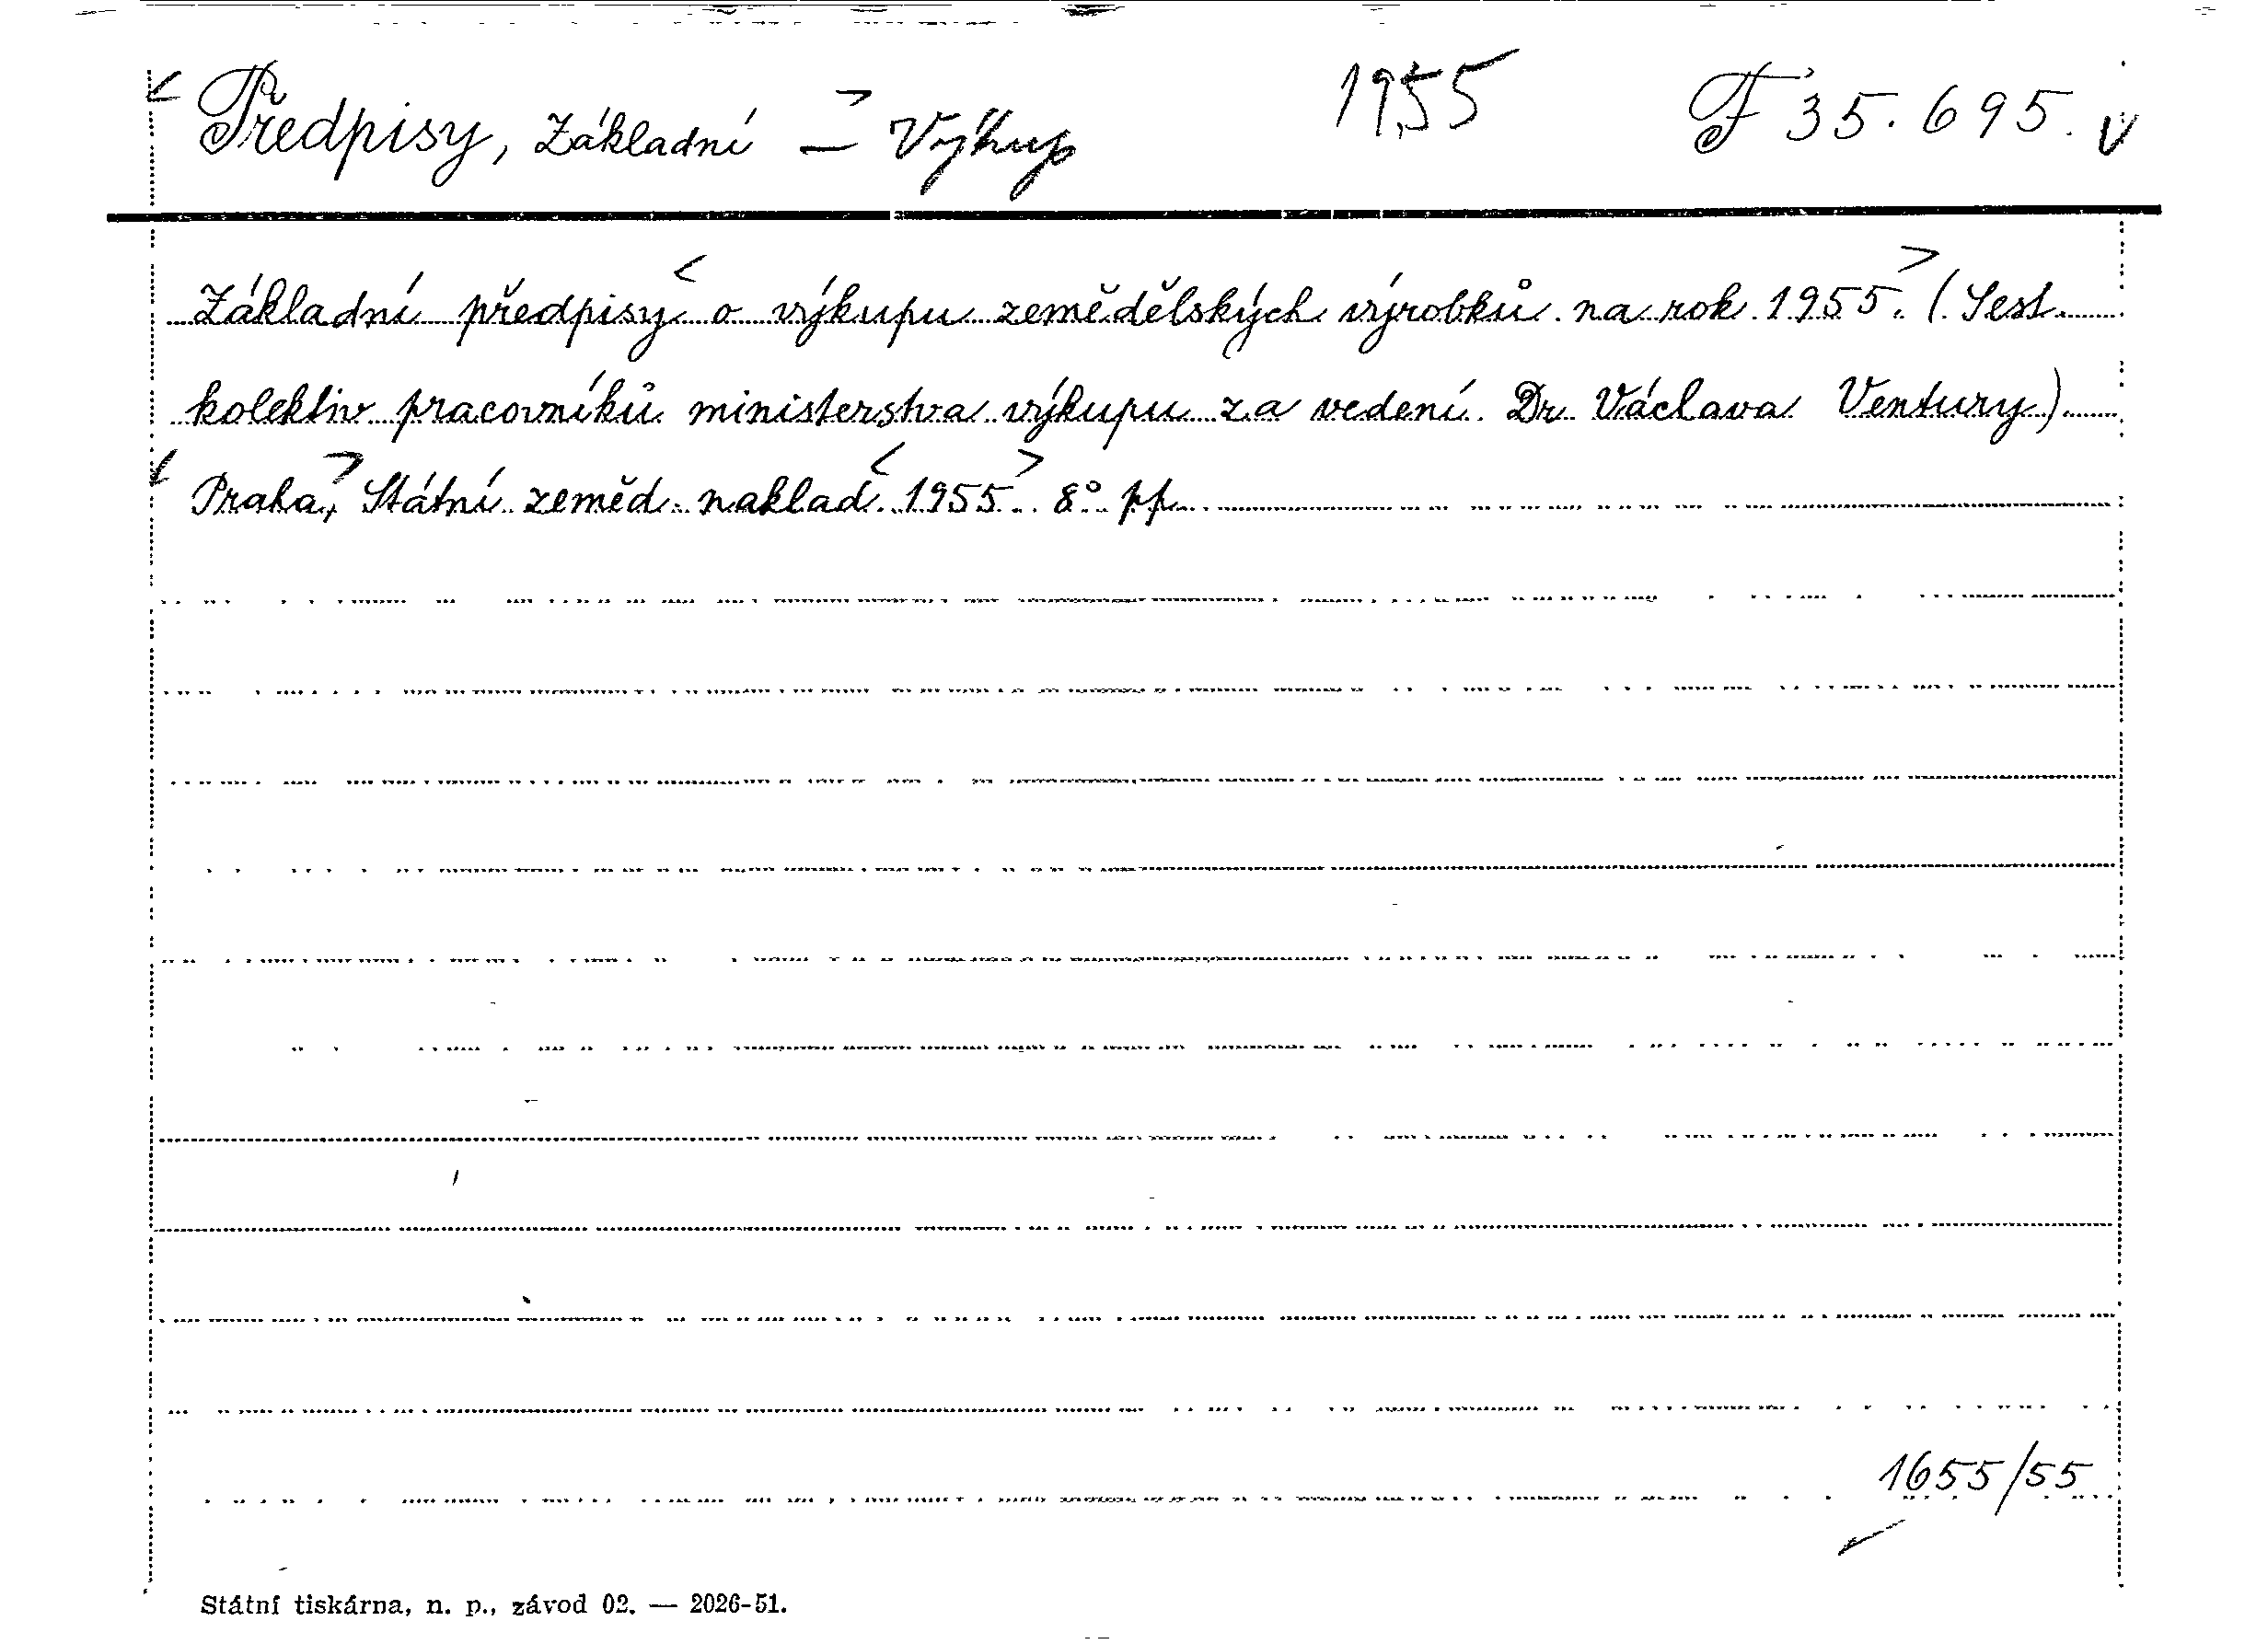 Předpisy, Základní — Výkup 1955 F 35.695.
Základní předpisy o výkupu zemědělských výrobků na rok 1955. (Sest.
kolektiv pracovníků ministerstva výkupu za vedení Dr Václava Ventury)
Praha, Státní zeměd. naklad. 1955. 8° pp.
1655/55
Státní tiskárna, n. p., závod 02. — 2026-51.